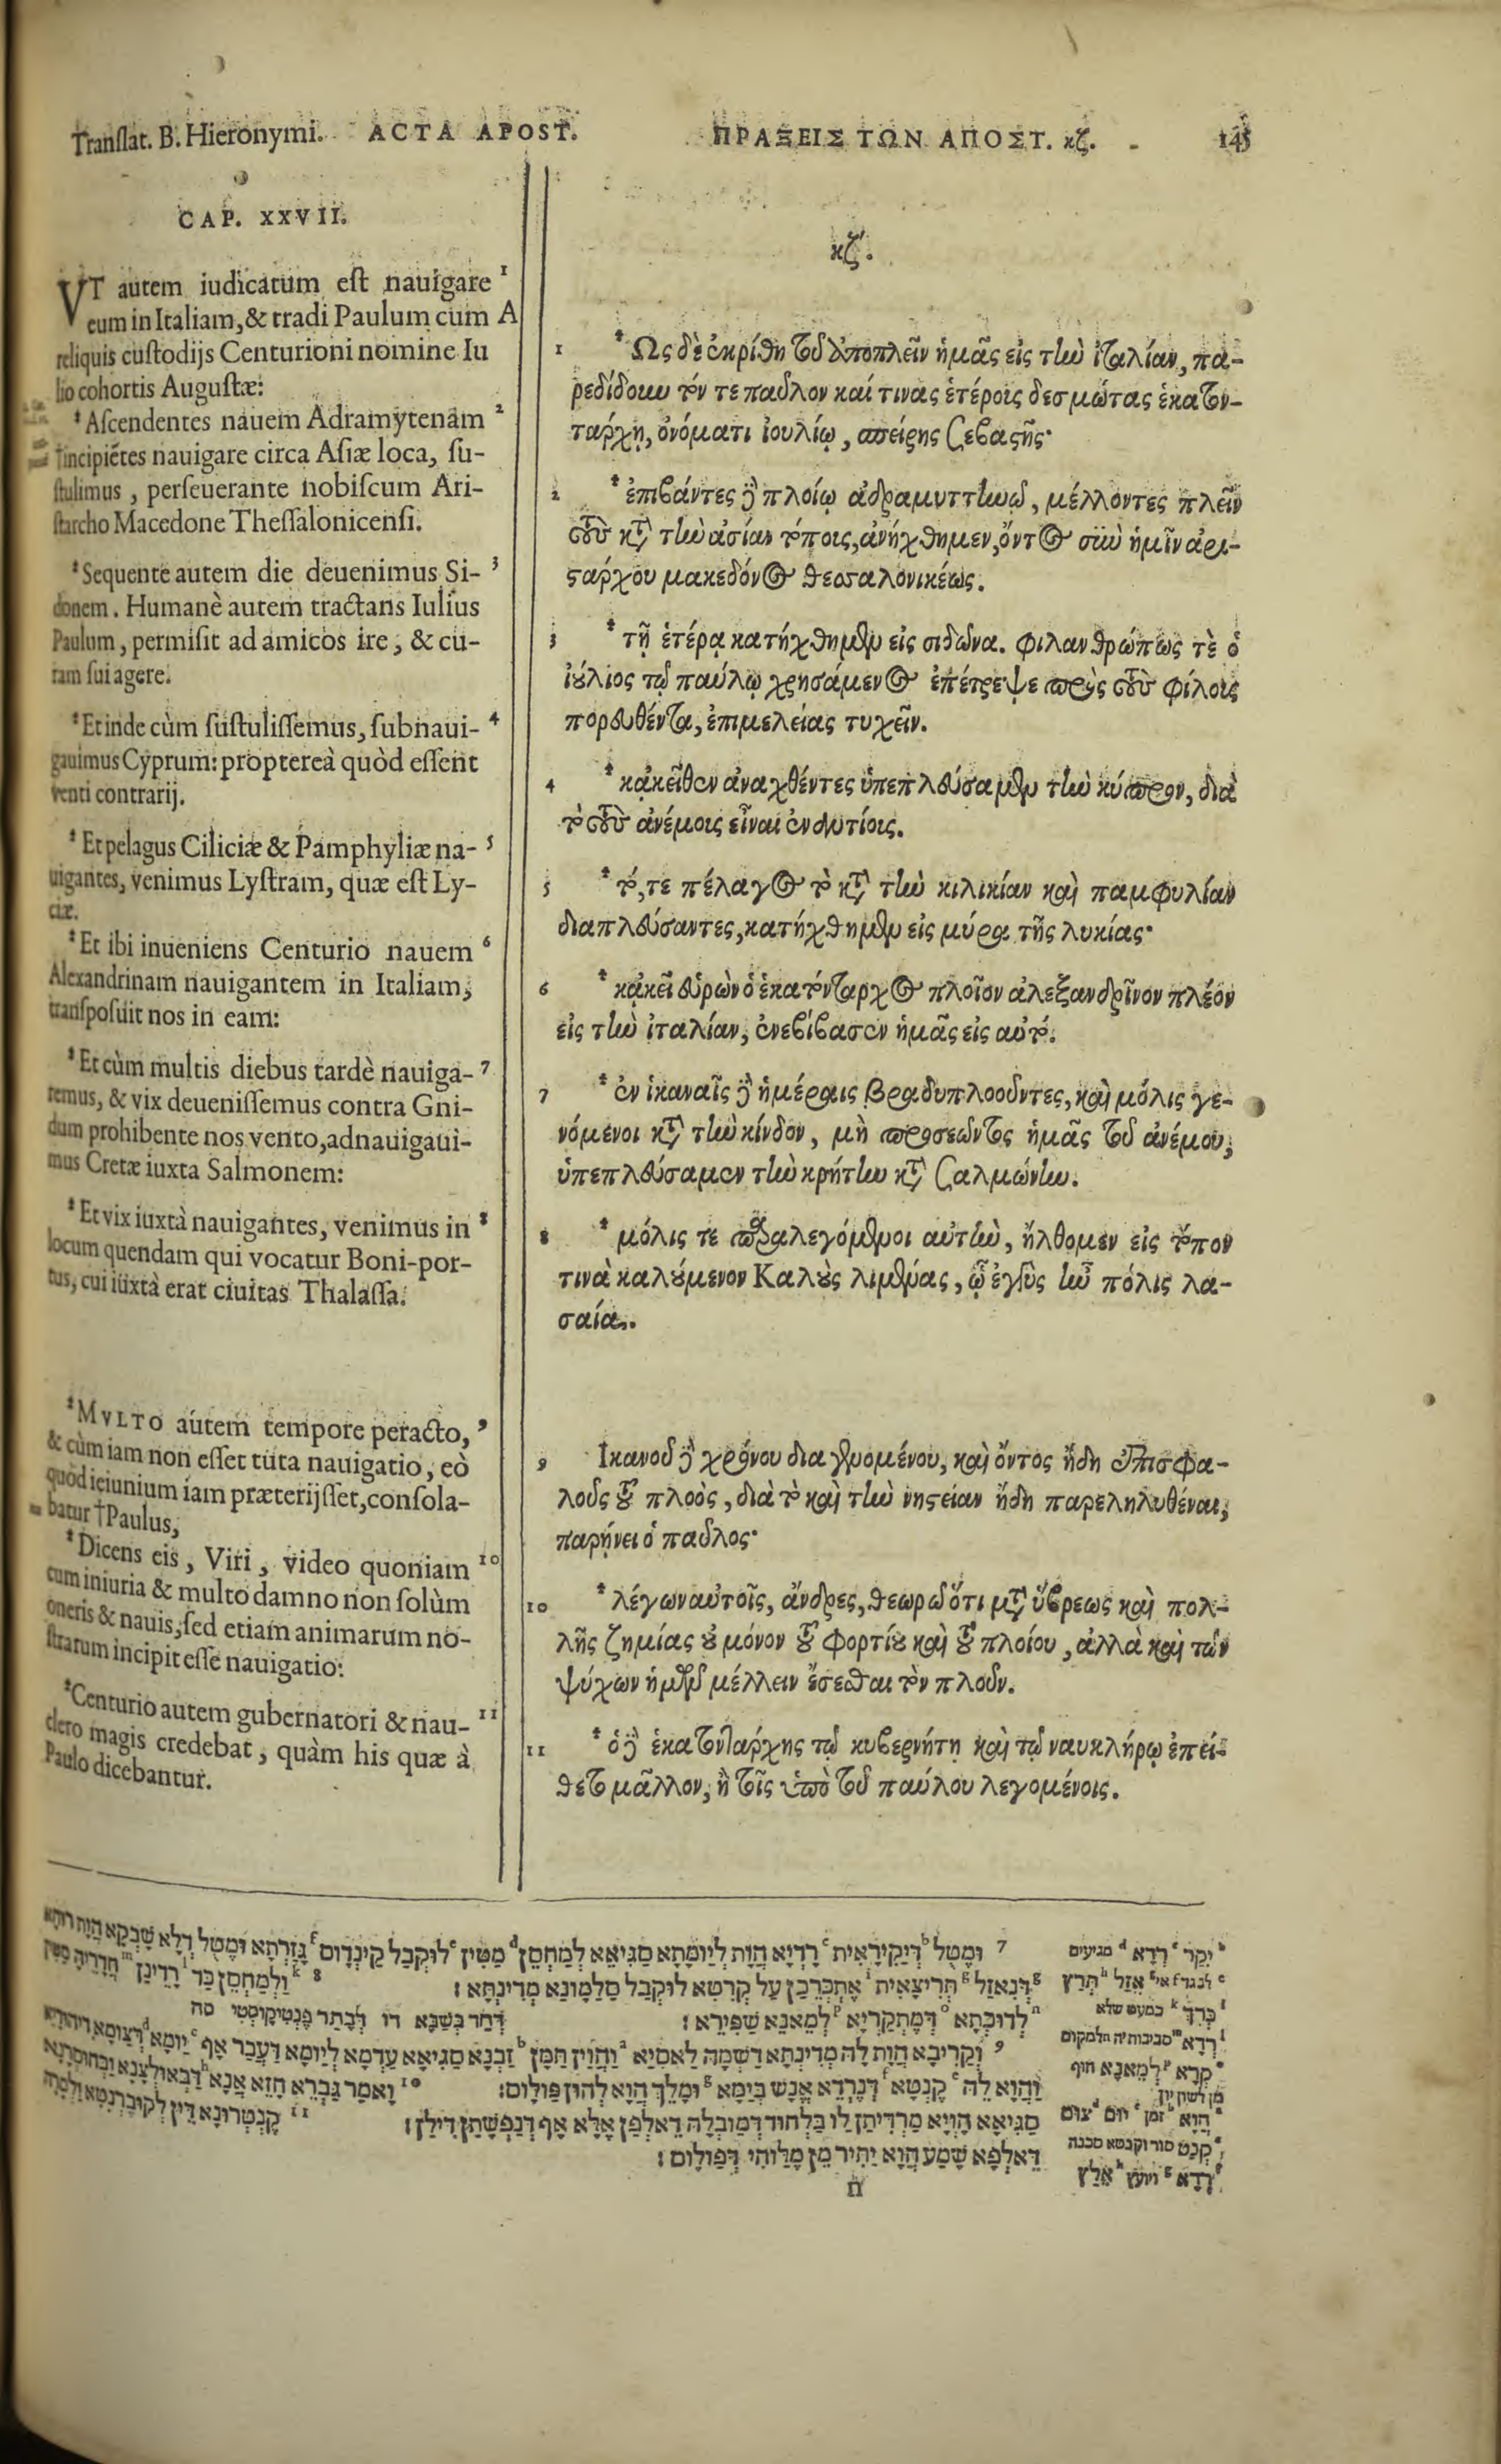 Translat. B. Hieronymi. ACTA APOST.
ΠΡΑΞΕΙΣ ΤΩΝ ΑΠΟΣΤ. κζ. 145
CAP. XXVII.
VT autem iudicatum eſt nauigare 1
eum in Italiam, & tradi Paulum cum A
reliquis cuſtodijs Centurioni nomine Iu
lio cohortis Auguſtæ:
Aſcendentes nauem Adramytenam 2
†incipiẽtes nauigare circa Aſiæ loca, ſu-
ſtulimus, perſeuerante nobiſcum Ari-
ſtarcho Macedone Theſſalonicenſi.
Sequente autem die deuenimus Si- 3
donem. Humanè autem tractans Iulius
Paulum, permiſit ad amicos ire, & cu-
ram ſui agere.
Et inde cùm ſuſtuliſſemus, ſubnaui- 4
gauimus Cyprum: propterea quòd eſſent
venti contrarij.
Et pelagus Ciliciæ & Pamphyliæ na- 5
uigantes, venimus Lyſtram, quæ eſt Ly-
ciæ.
Et ibi inueniens Centurio nauem 6
Alexandrinam nauigantem in Italiam,
tranſpoſuit nos in eam:
Et cùm multis diebus tardè nauiga- 7
remus, & vix deueniſſemus contra Gni-
dum prohibente nos vento, adnauigaui-
mus Cretæ iuxta Salmonem:
Et vix iuxtà nauigantes, venimus in 8
locum quendam qui vocatur Boni-por-
tus, cui iuxtà erat ciuitas Thalaſſa.
MVLTO autem tempore peracto, 9
& cùm iam non eſſet tuta nauigatio, eò
quòd ieiunium iam præterijſſet, conſola-
batur †Paulus,
Dicens eis, Viri, video quoniam 10
cum iniuria & multo damno non ſolùm
oneris & nauis, ſed etiam animarum no-
ſtrarum incipit eſſe nauigatio:
Centurio autem gubernatori & nau- 11
clero magis credebat, quàm his quæ à
Paulo dicebantur.
κζ'.
1 Ως δὲ ἐκρίθη τοῦ ἀποπλεῖν ἡμᾶς εἰς τὴν ἰταλίαν, πα-
ρεδίδουν τόν τε παῦλον καί τινας ἑτέροις δεσμώτας ἑκατον-
ταρχῃ, ὀνόματι ἰουλίῳ, σπείρης σεβαστῆς·
2 ἐπιβάντες δὲ πλοίῳ ἀδραμυττηνῷ, μέλλοντες πλεῖν
τοὺς κατὰ τὴν ἀσίαν τόποις, ἀνήχθημεν, ὄντος σὺν ἡμῖν ἀρι-
στάρχου μακεδόνος θεσσαλονικέως.
3 τῇ ἑτέρᾳ κατήχθημεν εἰς σιδῶνα. φιλανθρώπως τὲ ὁ
ἰούλιος τῷ παύλῳ χρησάμενος ἐπέτρεψε πρὸς τοὺς φίλοις
πορευθέντα, ἐπιμελείας τυχεῖν.
4 κᾀκεῖθεν ἀναχθέντες ὑπεπλεύσαμεν τὴν κύπρον, διὰ
τὸ τοὺς ἀνέμοις εἶναι ἐναντίοις.
5 τό, τε πέλαγος τὸ κατὰ τὴν κιλικίαν καὶ παμφυλίαν
διαπλεύσαντες, κατήχθημεν εἰς μύρα τῆς λυκίας·
6 κᾀκεῖ εὑρὼν ὁ ἑκατόνταρχος πλοῖον ἀλεξανδρῖνον πλέον
εἰς τὴν ἰταλίαν, ἐνεβίβασεν ἡμᾶς εἰς αὐτό.
7 ἐν ἱκαναῖς δὲ ἡμέραις βραδυπλοοῦντες, καὶ μόλις γε-
νόμενοι κατὰ τὴν κίνδον, μὴ προσεῶντος ἡμᾶς τοῦ ἀνέμου,
ὑπεπλεύσαμεν τὴν κρήτην κατὰ σαλμώνην.
8 μόλις τε παραλεγόμενοι αὐτὴν, ἤλθομεν εἰς τόπον
τινὰ καλούμενον Καλοὺς λιμένας, ᾧ ἐγγὺς ἦν πόλις λα-
σαία.
9 Ικανοῦ δὲ χρόνου διαγενομένου, καὶ ὄντος ἤδη ἐπισφα-
λοῦς τοῦ πλοὸς, διὰ τὸ καὶ τὴν νηστείαν ἤδη παρεληλυθέναι,
παρῄνει ὁ παῦλος·
10 λέγων αὐτοῖς, ἄνδρες, θεωρῶ ὅτι μετὰ ὕβρεως καὶ πολ-
λῆς ζημίας οὐ μόνον τοῦ φορτίου καὶ τοῦ πλοίου, ἀλλὰ καὶ τῶν
ψύχων ἡμῶν μέλλειν ἔσεσθαι τὸν πλοῦν.
11 ὁ δὲ ἑκατοντάρχης τῷ κυβερνήτῃ καὶ τῷ ναυκλήρῳ ἐπεί-
θετο μᾶλλον, ἢ τοῖς ὑπὸ τοῦ παύλου λεγομένοις.
7 וּמֶטֻל דְּיַקִּירָאִית רָדְיָא הֲוָת לְיַומָּתָא סַגִּיאֵא לְמַחְסֵן מַטִּין לוּקְבַל קֵינְדָוֹם גָּזַרְתָא וּמֶטֻל דְּלָא שָׁבְקָא הֲוָת רוּחָא
דְּנִאזַל תְּרִיצָאִית אֶתְכְּרֵכַן עַל קְרֵטִא לוּקְבַל סַלְמוּנַא מְדִינְתָּא׃ 8 וַלְמַחְסֵן כַּד רָדֵינַן חֲדָרֵיהּ
לְדוּכְּתָא דְּמֶתְקַרְיָא לְמֵאנֵא שַׁפִּירֵא׃ דְּחַד בְּשַׁבָּא דו לְבָתַר פֶּנְטִיקוֹסְטִי סה
9 וְקַרִיבָא הֲוָת לָהּ מְדִינְתָּא דַשְׁמָהּ לַאסִיַא וַהֲוַין תַּמָּן זַבְנָא סַגִּיאָא עֲדַמָא לְיַומָא דַעֲבַר אָף יַומָא דְּצַומָא דִיהוּדָיֵא
וַהֲוָא לֵהּ קֶנְטָא דְּנֶרְדֵא אֱנָשׁ בְּיַמָּא וּמָלֵךְ הֲוָא לְהוּן פַּולָוֹס׃ 10 וָאמַר גַּבְרֵא חָזֵא אֲנָא דַּבְאוּלְצָנָא וּבְחוּסְרָנָא
סַגִּיאָא הָוְיָא מַרְדִּיתַן לַו בַּלְחוּד דְּמַובְלָהּ דֵּאלְפַן אֶלָּא אָף דְּנַפְשָׁתַן דִּילַן׃ 11 קֶנְטְרוּנָא דֵּין לְקוּבַּרְנִטָא וַלְמָרָהּ
דֵּאלְפָא שָׁמַע הֲוָא יַתִּיר מֵן מֶלַּוהִי דְּפַולָוֹס׃
יִקַר רְדָא מגיעים
אֵזַל תְּרַץ
כְּרַךְ כמעט שלא
רְדָא סביבותיה למקום
קְרָא לְמֵאנָא חוף
מן לשון יון
הֲוָא זמן יום צום
קְנַט סכנה
רְדָא ויועץ אֵלַץ
n